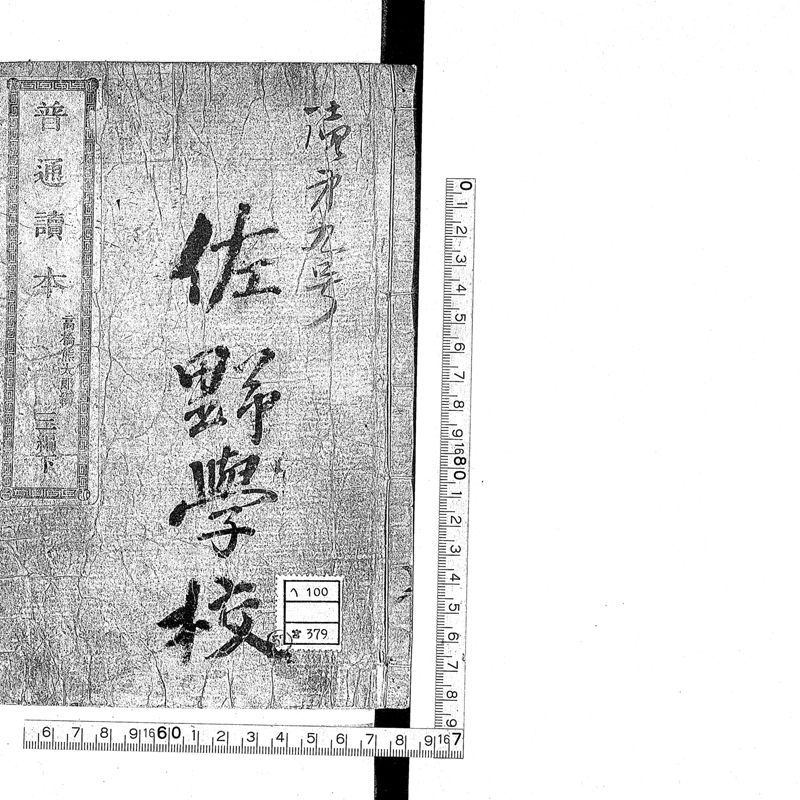 讀第九号
佐野學校
普通讀本
高橋熊太郎編
三編下
ヘ 100
宮 379
0 1 2 3 4 5 6 7 8 9 16 80 1 2 3 4 5 6 7 8 9
6 7 8 9 16 60 1 2 3 4 5 6 7 8 9 16 7